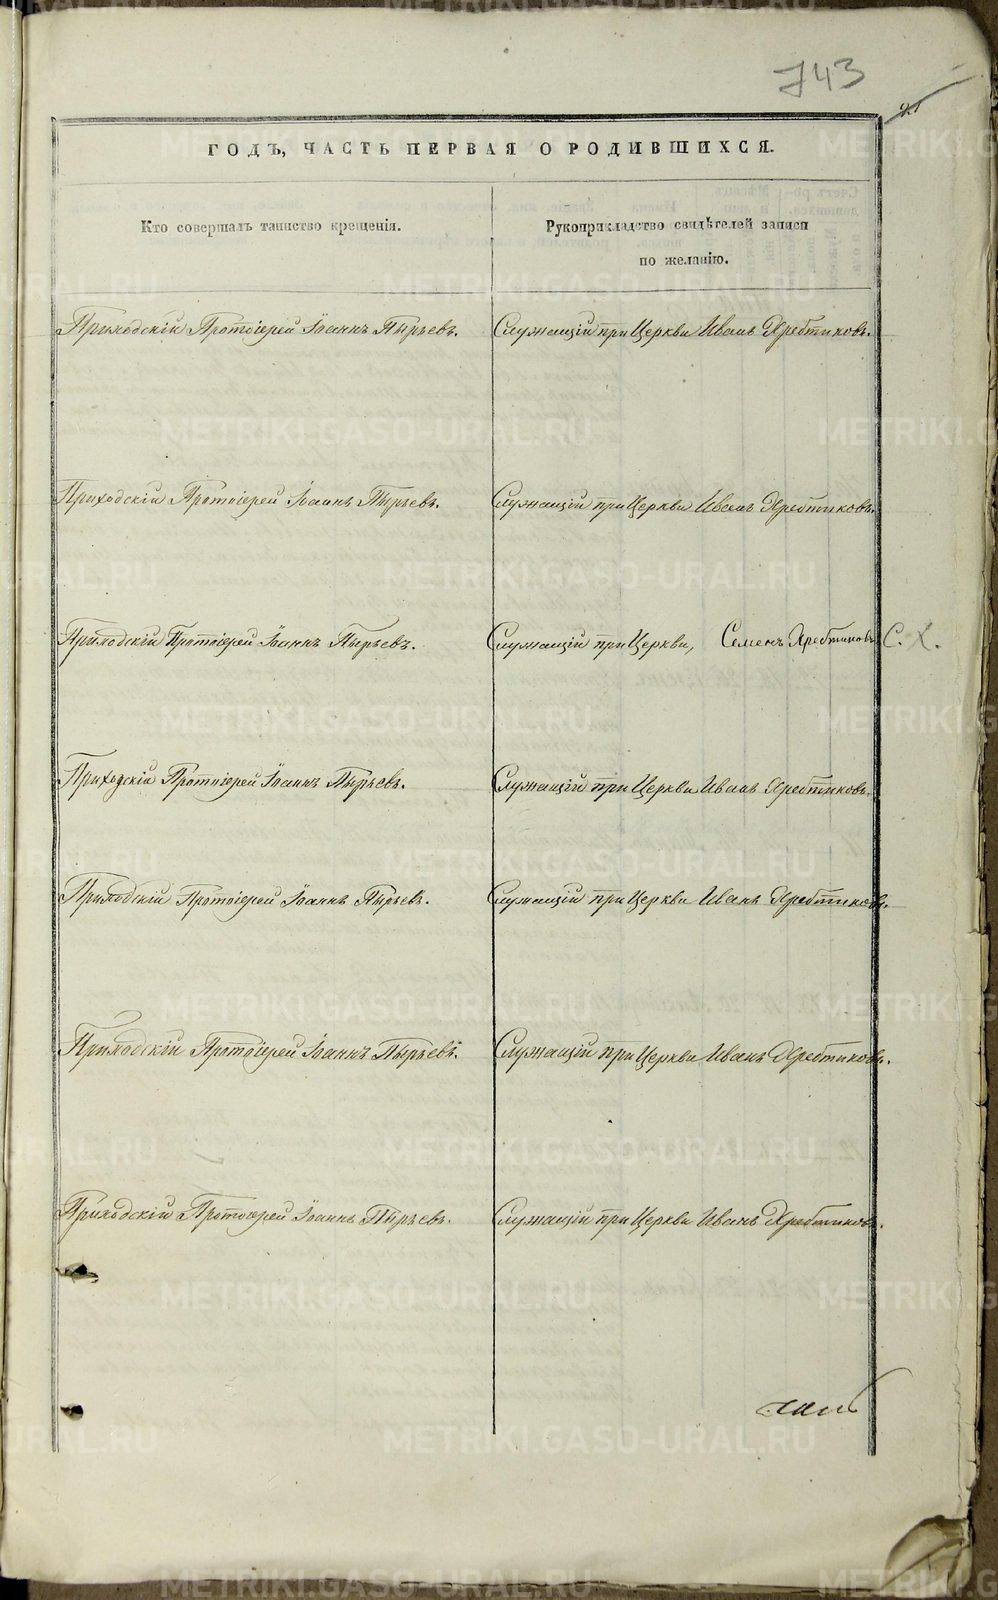 743
ГОДЪ, ЧАСТЬ ПЕРВАЯ О РОДИВШИХСЯ.
Кто совершалъ таинство крещенія.
Рукоприкладство свидѣтелей записи
по желанію.
Приходскій Протоіерей Іоаннъ Пырьевъ.
Служащій при Церкви Иванъ Хребтиковъ.
Приходскій Протоіерей Іоаннъ Пырьевъ.
Служащій при Церкви Иванъ Хребтиковъ.
Приходскій Протоіерей Іоаннъ Пырьевъ.
Служащій при Церкви, Семенъ Хребтиковъ С. Х.
Приходскій Протоіерей Іоаннъ Пырьевъ.
Служащій при Церкви Иванъ Хребтиковъ.
Приходскій Протоіерей Іоаннъ Пырьевъ.
Служащій при Церкви Иванъ Хребтиковъ.
Приходскій Протоіерей Іоаннъ Пырьевъ.
Служащій при Церкви Иванъ Хребтиковъ.
Приходскій Протоіерей Іоаннъ Пырьевъ.
Служащій при Церкви Иванъ Хребтиковъ.
METRIKI.GASO-URAL.RU